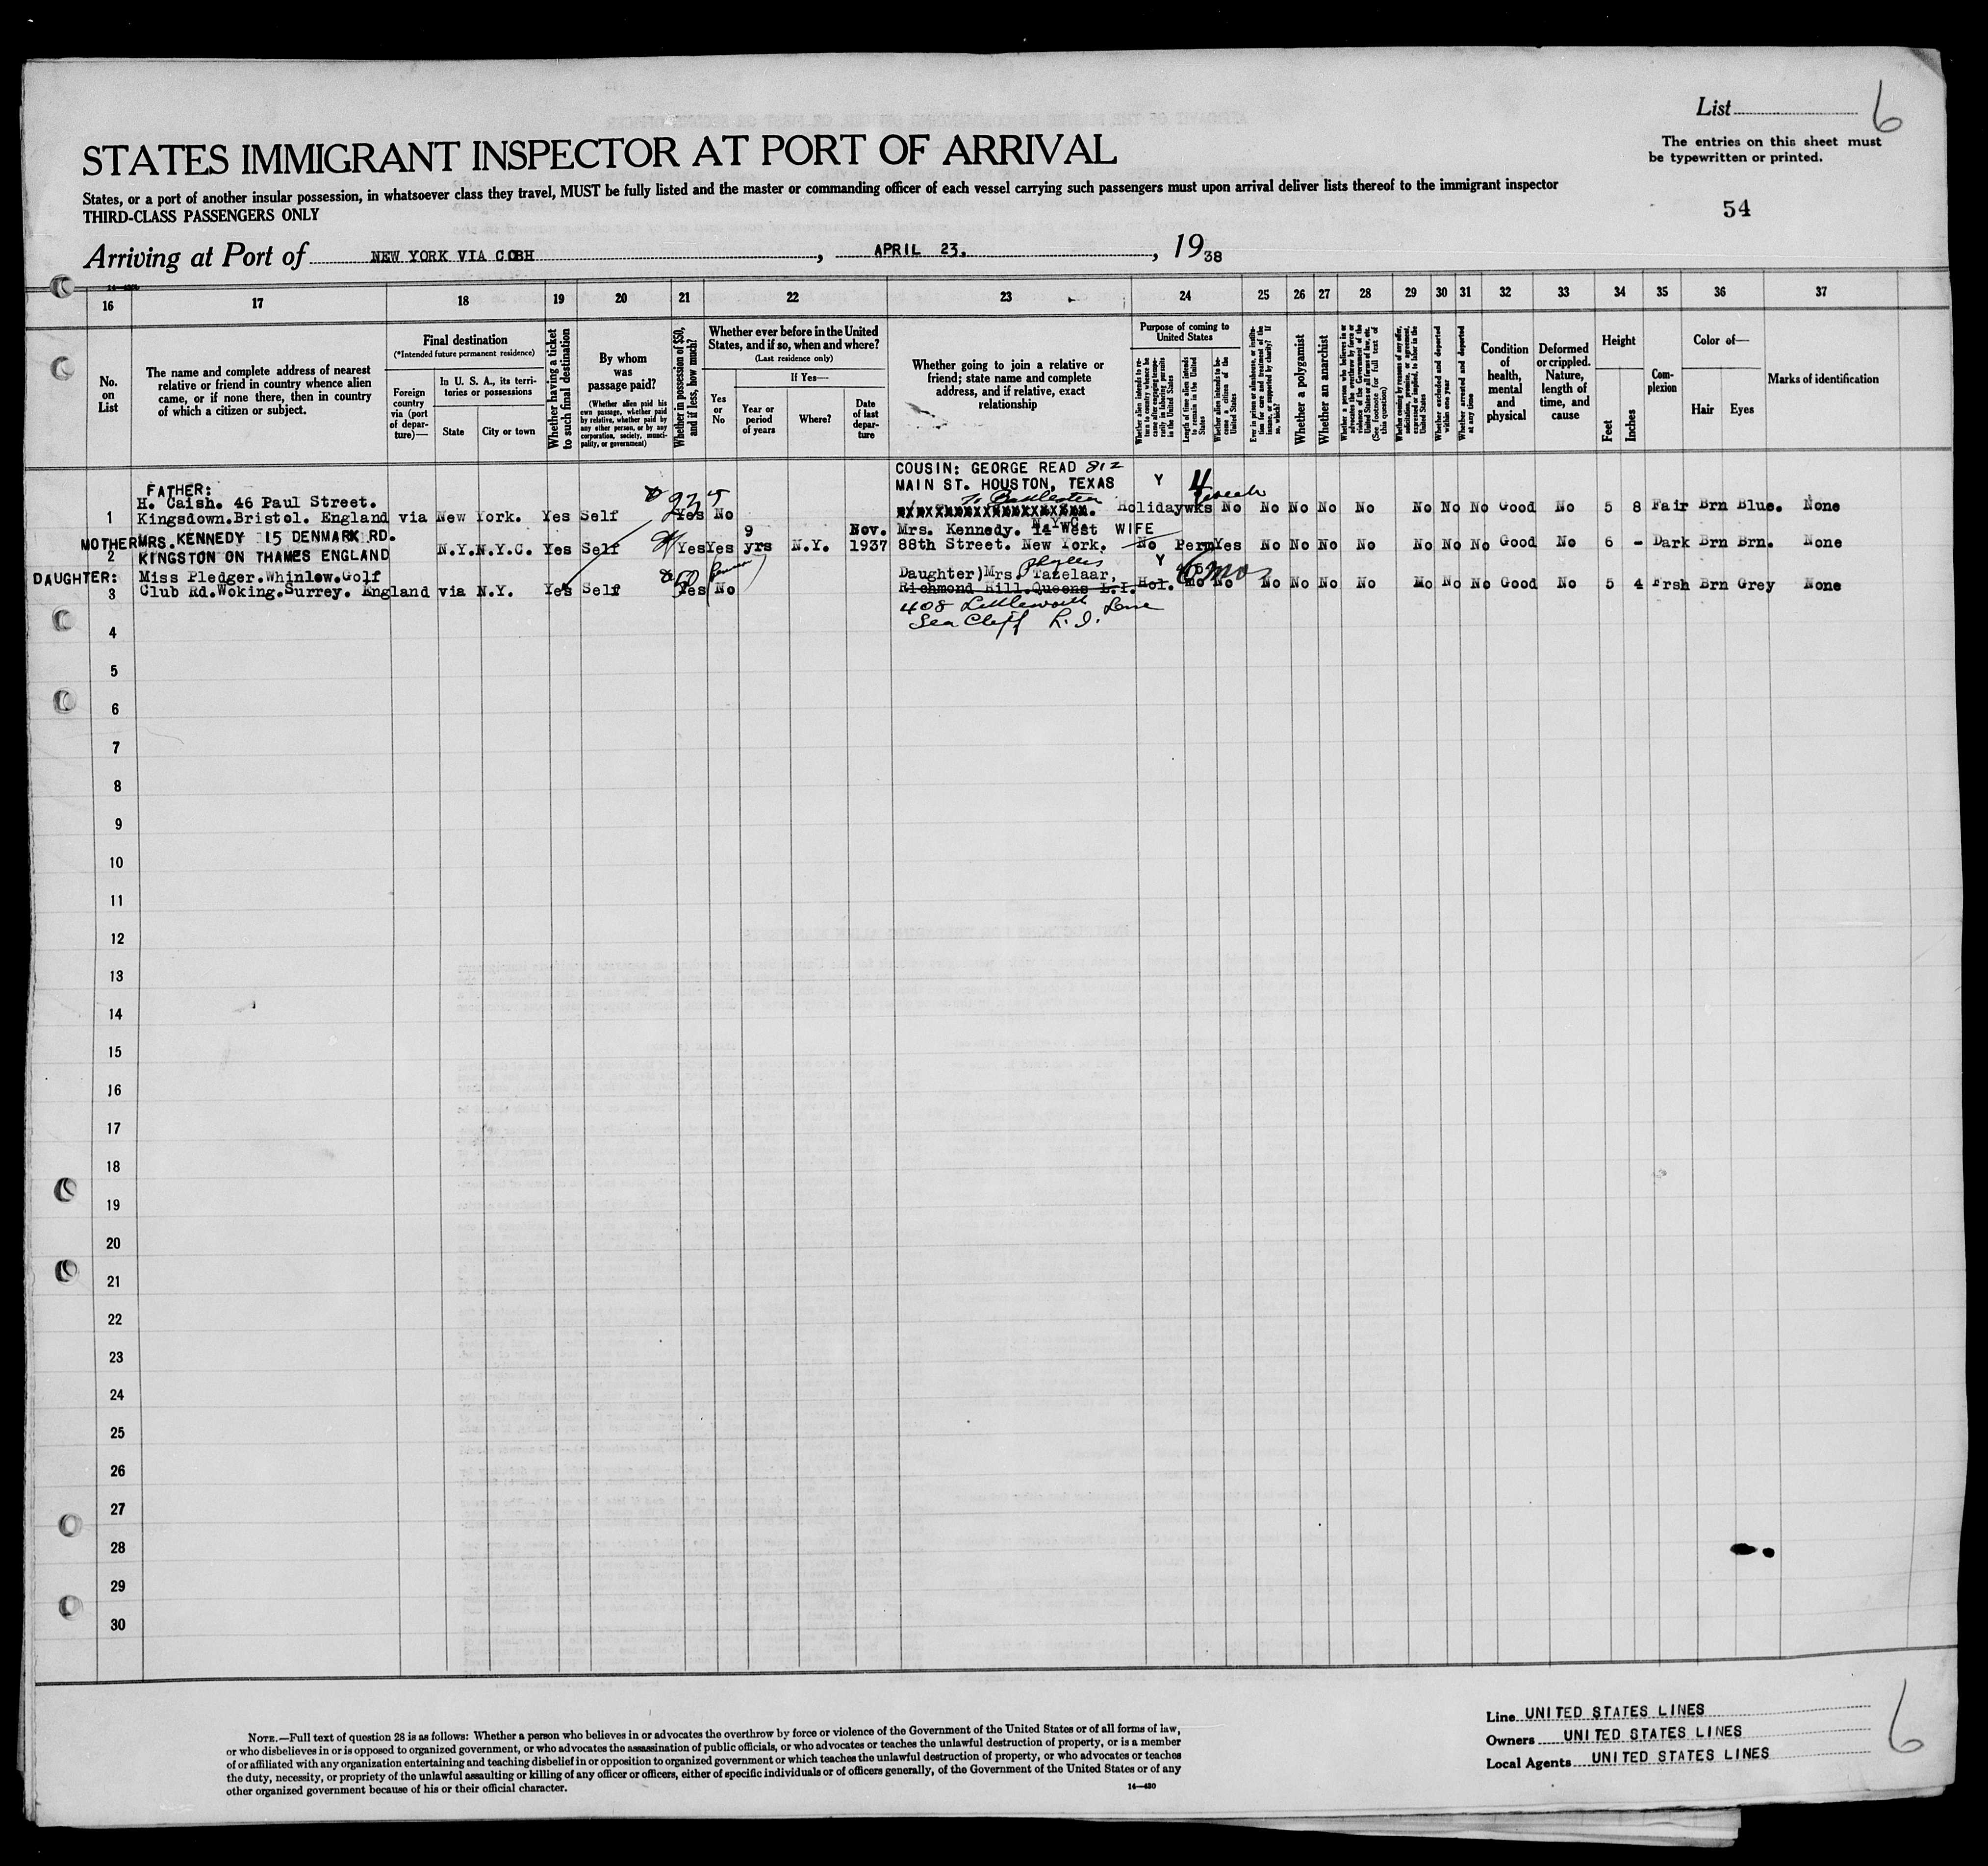 List 6
The entries on this sheet must
be typewritten or printed.
STATES IMMIGRANT INSPECTOR AT PORT OF ARRIVAL
States, or a port of another insular possession, in whatsoever class they travel, MUST be fully listed and the master or commanding officer of each vessel carrying such passengers must upon arrival deliver lists thereof to the immigrant inspector
THIRD-CLASS PASSENGERS ONLY
54
Arriving at Port of NEW YORK VIA COBH, APRIL 23, 1938
16 17 18 19 20 21 22 23 24 25 26 27 28 29 30 31 32 33 34 35 36 37
No. on List
The name and complete address of nearest
relative or friend in country whence alien
came, or if none there, then in country
of which a citizen or subject.
Final destination
(*Intended future permanent residence)
Foreign country via (port of departure)—
In U. S. A., its territories or possessions
State
City or town
Whether having a ticket to such final destination
By whom was passage paid?
(Whether alien paid his own passage, whether paid by relative, whether paid by any other person, or by any corporation, society, municipality, or government)
Whether in possession of $50, and if less, how much?
Whether ever before in the United
States, and if so, when and where?
(Last residence only)
Yes or No
If Yes—
Year or period of years
Where?
Date of last departure
Whether going to join a relative or
friend; state name and complete
address, and if relative, exact
relationship
Purpose of coming to United States
Length of time alien intends to remain in the United States
Whether alien intends to become a citizen of the United States
Whether a polygamist
Whether an anarchist
(See footnote for full text of this question)
Whether excluded and deported within one year
Whether arrested and deported at any time
Condition of health, mental and physical
Deformed or crippled. Nature, length of time, and cause
Height
Feet
Inches
Complexion
Color of—
Hair
Eyes
Marks of identification
COUSIN: GEORGE READ 812
MAIN ST. HOUSTON, TEXAS Y 4
FATHER:
H. Caish. 46 Paul Street.
1 Kingsdown.Bristol. England via New York. Yes Self Yes No Holiday wks No No No No No No No No Good No 5 8 Fair Brn Blue. None
MOTHER MRS. KENNEDY 15 DENMARK RD. 9 Nov. Mrs. Kennedy. 14 West WIFE
2 KINGSTON ON THAMES ENGLAND N.Y. N.Y.C. Yes Self Yes Yes yrs N.Y. 1937 88th Street. New York. No Perm Yes No No No No No No No Good No 6 - Dark Brn Brn. None
N.Y.C.
DAUGHTER: Miss Pledger.Whinlow.Golf 50 Daughter) Mrs. Phyllis Tazelaar, Y 6 mos
3 Club Rd.Woking.Surrey. England via N.Y. Yes Self Yes No Richmond Hill.Queens L.I. Hol. mo No No No No No No No No Good No 5 4 Frsh Brn Grey None
408 Littleworth Lane
Sea Cliff L.I.
4
5
6
7
8
9
10
11
12
13
14
15
16
17
18
19
20
21
22
23
24
25
26
27
28
29
30
NOTE.—Full text of question 28 is as follows: Whether a person who believes in or advocates the overthrow by force or violence of the Government of the United States or of all forms of law,
or who disbelieves in or is opposed to organized government, or who advocates the assassination of public officials, or who advocates or teaches the unlawful destruction of property, or is a member
of or affiliated with any organization entertaining and teaching disbelief in or opposition to organized government or which teaches the unlawful destruction of property, or who advocates or teaches
the duty, necessity, or propriety of the unlawful assaulting or killing of any officer or officers, either of specific individuals or of officers generally, of the Government of the United States or of any
other organized government because of his or their official character.
14—430
Line UNITED STATES LINES
Owners UNITED STATES LINES
Local Agents UNITED STATES LINES
6